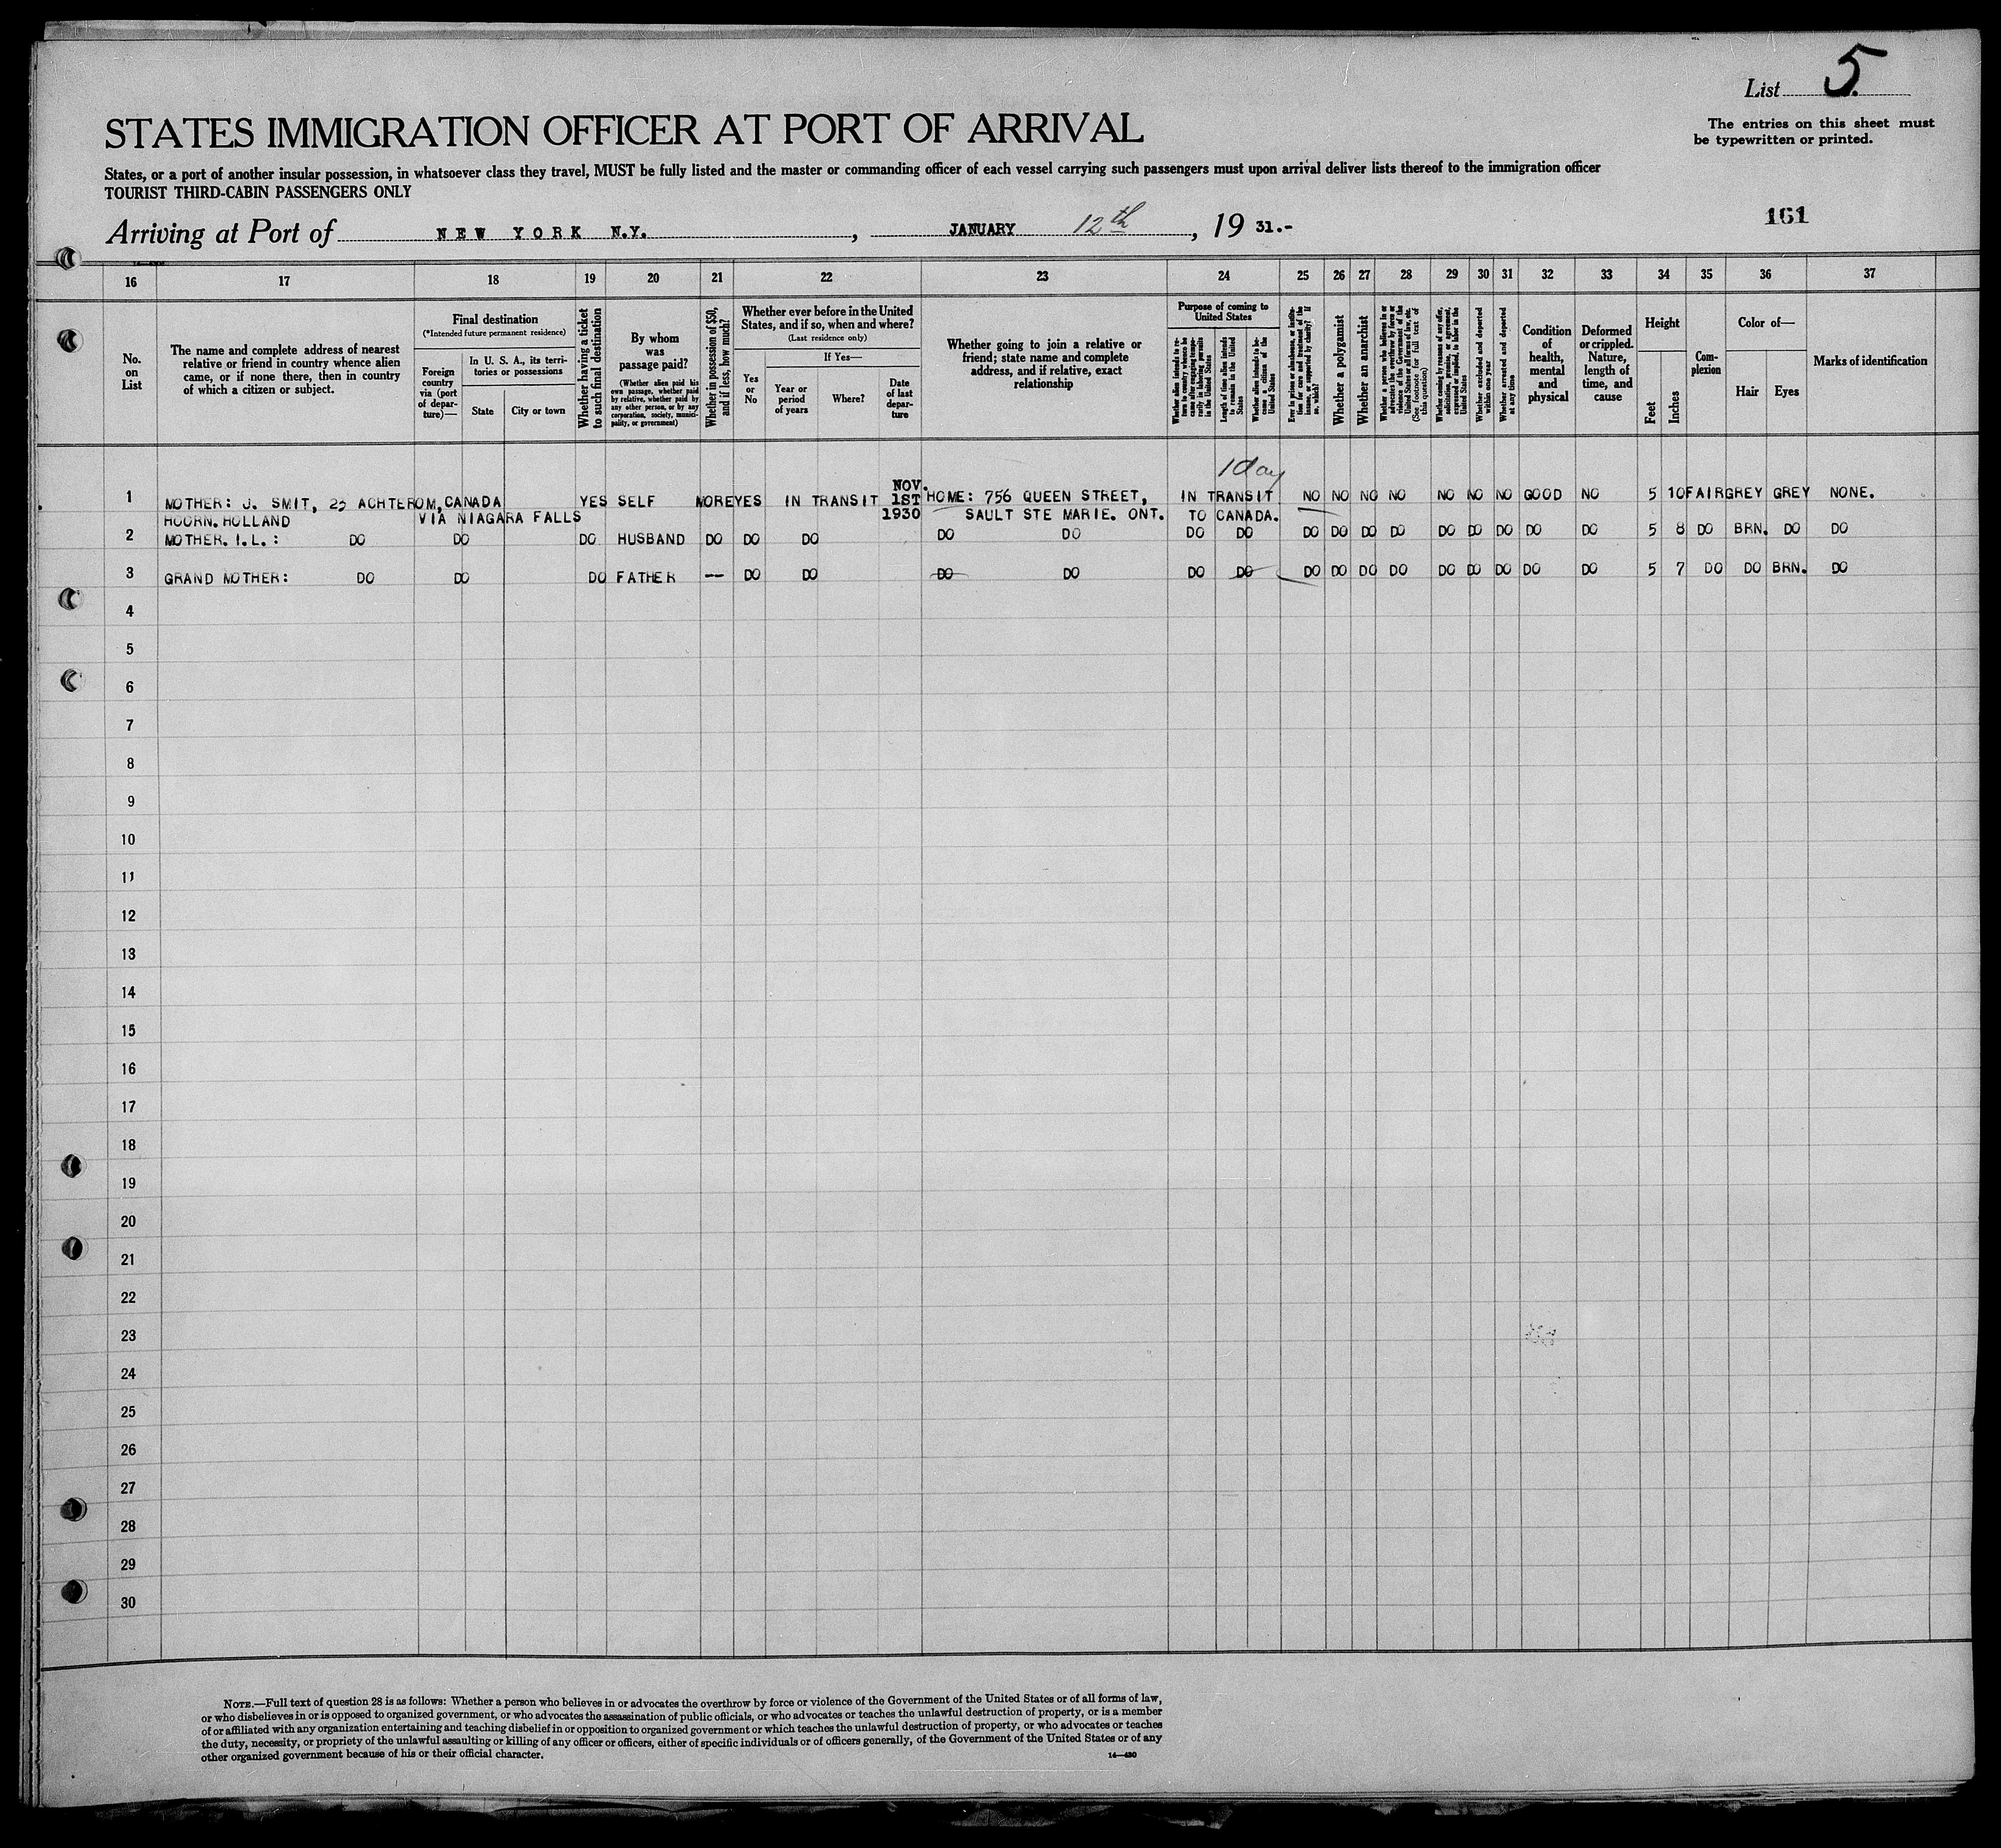 List 5.
The entries on this sheet must
be typewritten or printed.
STATES IMMIGRATION OFFICER AT PORT OF ARRIVAL
States, or a port of another insular possession, in whatsoever class they travel, MUST be fully listed and the master or commanding officer of each vessel carrying such passengers must upon arrival deliver lists thereof to the immigration officer
TOURIST THIRD-CABIN PASSENGERS ONLY
161
Arriving at Port of NEW YORK N.Y. , JANUARY 12th , 19 31.-
16 17 18 19 20 21 22 23 24 25 26 27 28 29 30 31 32 33 34 35 36 37
No.
on
List
The name and complete address of nearest
relative or friend in country whence alien
came, or if none there, then in country
of which a citizen or subject.
Final destination
(*Intended future permanent residence)
Foreign
country
via (port
of depar-
ture)—
In U. S. A., its terri-
tories or possessions
State
City or town
Whether having a ticket
to such final destination
By whom
was
passage paid?
(Whether alien paid his
own passage, whether paid
by relative, whether paid by
any other person, or by any
corporation, society, munici-
pality, or government)
Whether in possession of $50,
and if less, how much?
Whether ever before in the United
States, and if so, when and where?
(Last residence only)
Yes
or
No
If Yes—
Year or
period
of years
Where?
Date
of last
depar-
ture
Whether going to join a relative or
friend; state name and complete
address, and if relative, exact
relationship
Purpose of coming to
United States
Whether alien intends to re-
turn to country whence he
came after engaging tempo-
rarily in laboring pursuits
in the United States
Length of time alien intends
to remain in the United
States
Whether alien intends to be-
come a citizen of the
United States
Ever in prison or almshouse, or institu-
tion for care and treatment of the
insane, or supported by charity? If
so, which?
Whether a polygamist
Whether an anarchist
Whether a person who believes in or
advocates the overthrow by force or
violence of the Government of the
United States or all forms of law, etc.
(See footnote for full text of
this question)
Whether coming by reason of any offer,
solicitation, promise, or agreement,
expressed or implied, to labor in the
United States
Whether excluded and deported
within one year
Whether arrested and deported
at any time
Condition
of
health,
mental
and
physical
Deformed
or crippled.
Nature,
length of
time, and
cause
Height
Feet
Inches
Com-
plexion
Color of—
Hair
Eyes
Marks of identification
1 day
1 MOTHER: J. SMIT, ACHTEROM, CANADA YES SELF MORE YES IN TRANSIT NOV. 1ST HOME: 756 QUEEN STREET, IN TRANSIT NO NO NO NO NO NO NO GOOD NO 5 10 FAIR GREY GREY NONE.
HOORN. HOLLAND VIA NIAGARA FALLS 1930 SAULT STE MARIE. ONT. TO CANADA.
2 MOTHER. I.L.: DO DO DO HUSBAND DO DO DO DO DO DO DO DO DO DO DO DO DO DO DO DO 5 8 DO BRN. DO DO
3 GRAND MOTHER: DO DO DO FATHER -- DO DO DO DO DO DO DO DO DO DO DO DO DO DO DO 5 7 DO DO BRN. DO
4
5
6
7
8
9
10
11
12
13
14
15
16
17
18
19
20
21
22
23
24
25
26
27
28
29
30
NOTE.—Full text of question 28 is as follows: Whether a person who believes in or advocates the overthrow by force or violence of the Government of the United States or of all forms of law,
or who disbelieves in or is opposed to organized government, or who advocates the assassination of public officials, or who advocates or teaches the unlawful destruction of property, or is a member
of or affiliated with any organization entertaining and teaching disbelief in or opposition to organized government or which teaches the unlawful destruction of property, or who advocates or teaches
the duty, necessity, or propriety of the unlawful assaulting or killing of any officer or officers, either of specific individuals or of officers generally, of the Government of the United States or of any
other organized government because of his or their official character.
14—430